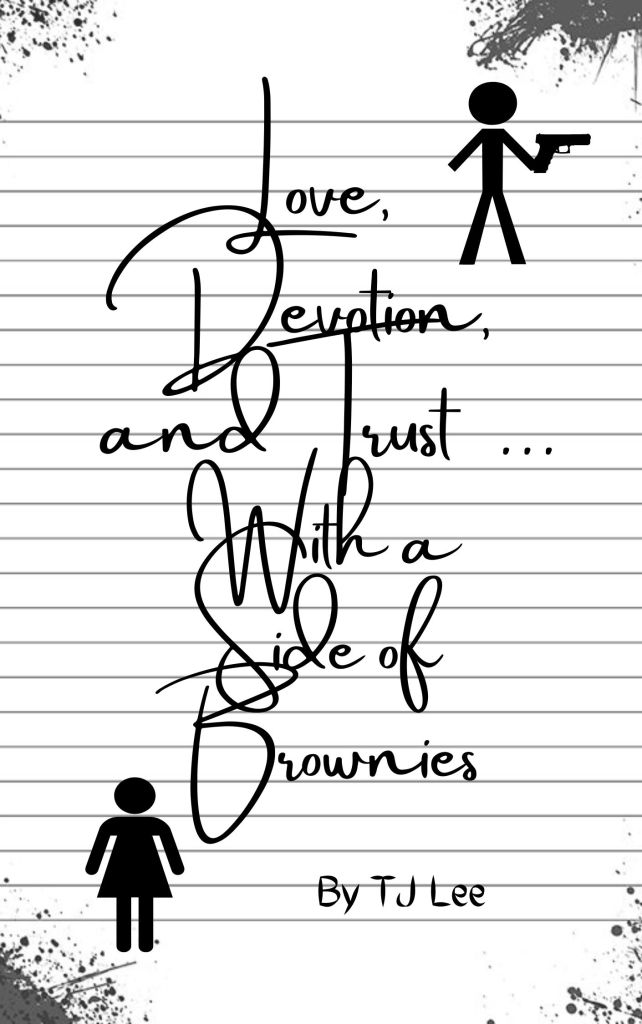 Love,
Devotion,
and Trust ...
With a
Side of
Brownies
By TJ Lee